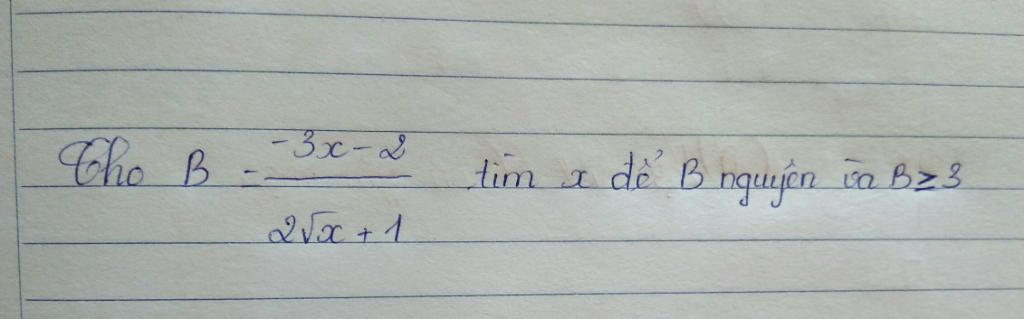 Cho B = -3x - 2 / 2√x + 1 tìm x để B nguyên và B ≥ 3